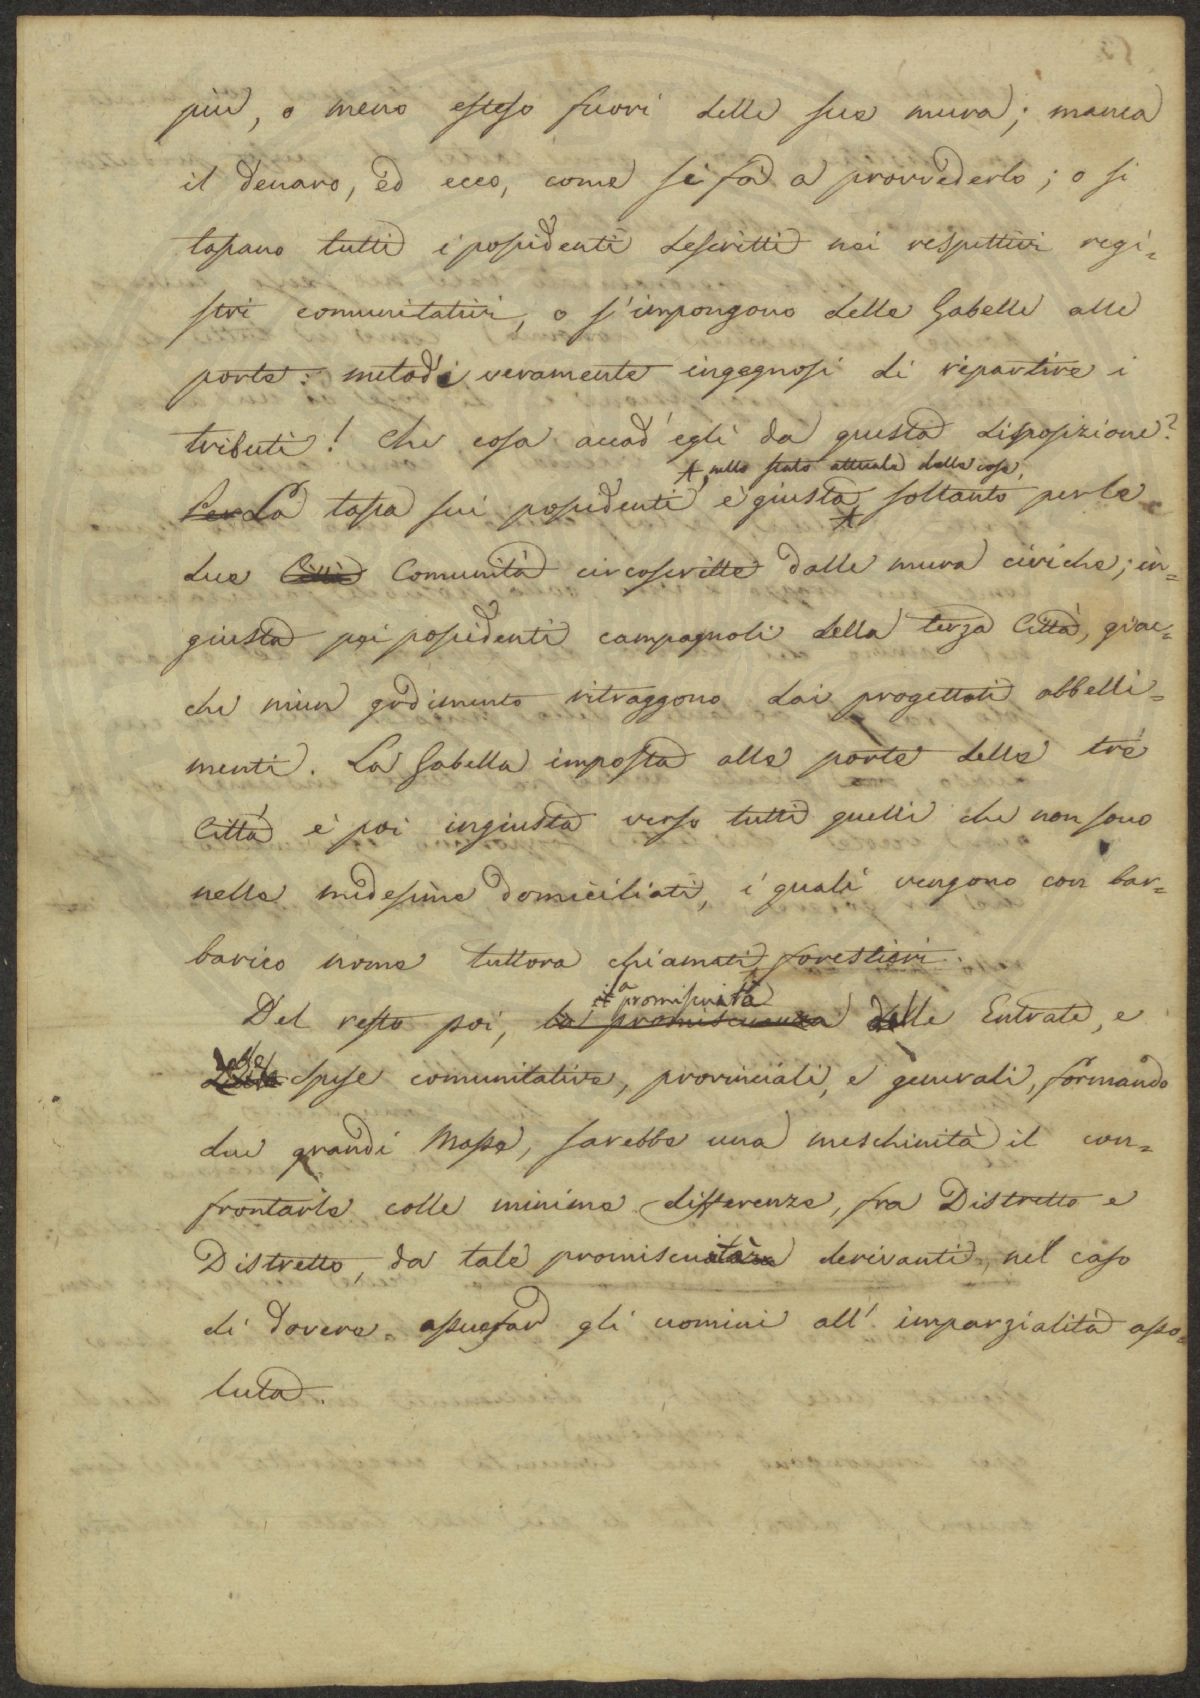 più, o meno esteso fuori delle sue mura; manca
il denaro, ed ecco, come si fà a provvederlo; o si
tassano tutti i possidenti descritti nei respettivi regi-
stri comunitativi, o s'impongono delle Gabelle alle
porte: metodi veramente ingegnosi di repartire i
tributi! Che cosa accad'egli da questa disposizione?
, nello stato attuale delle cose,
La tassa sui possidenti è giusta soltanto per le
due Città Comunità circoscritte dalle mura civiche; in-
giusta poi possidenti campagnoli della terza Città, giac-
che niun godimento ritraggono dai progettati abbelli-
menti. La Gabella imposta alle porte delle tre
Città è poi ingiusta verso tutti quelli che non sono
nelle medesime domiciliati, i quali vengono con bar-
barico nome tuttora chiamati forestieri.
la promiscuità
Del resto poi, la promiscuanza delle Entrate, e
delle spese comunitative, provinciali, e generali, formando
due grandi Masse, sarebbe una meschinità il con-
frontarle colle minime differenze, fra Distretto e
Distretto, da tale promiscuità derivanti, nel caso
di dovere assuefar gli uomini all'imparzialità asso-
luta.